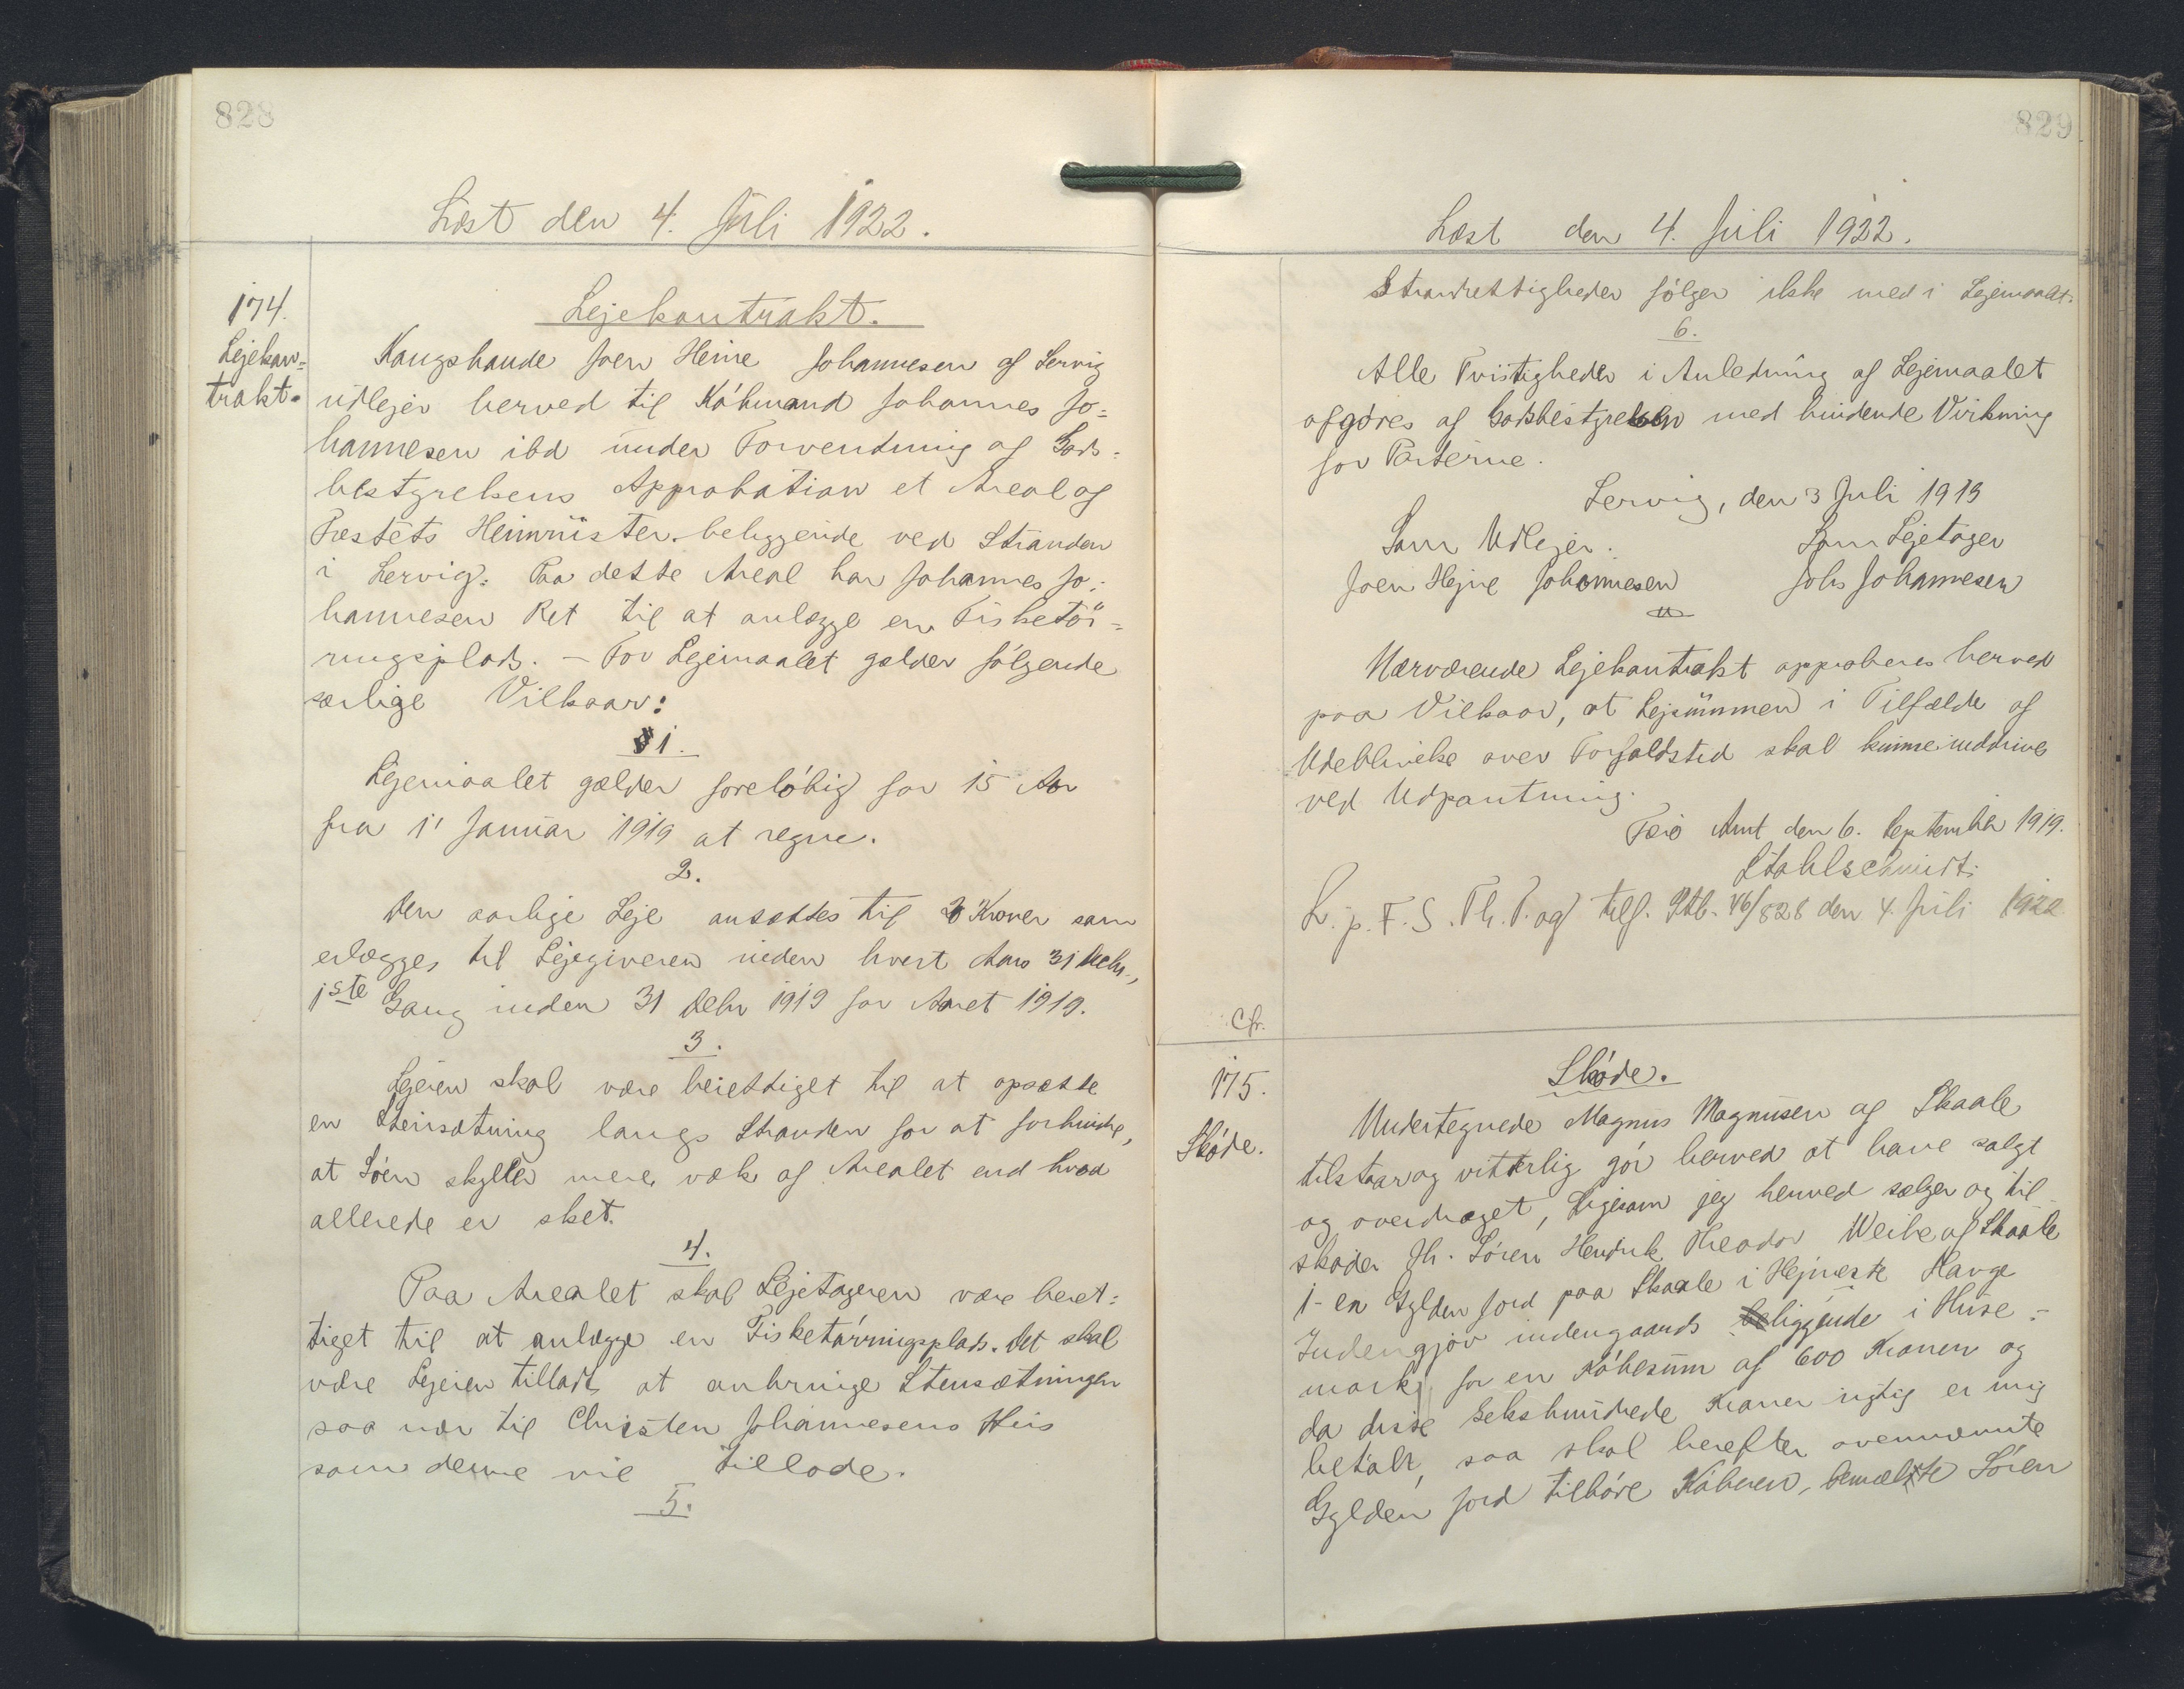 828
Læst den 4. Juli 1922.
174.
Lejekon=
trakt.
Lejekontrakt.
Kongsbonde Joen Heine Johannesen af Lervig
udlejer herved til Købmand Johannes Jo=
hannesen ibd under Forventning af Gods=
bestyrelsens Approbation et Areal af
Fæstets Heimrüster beliggende ved Stranden
i Lervig. Paa dette Areal har Johannes Jo=
hannesen Ret til at anlægge en Fisketör=
ringsplads. — For Lejemaalet gælder følgende
særlige Vilkaar:
§ 1.
Lejemaalet gælder foreløbig for 15 Aar
fra 1' Januar 1919 at regne.
2.
Den aarlige Leje ansættes til 20 Kroner som
erlægges til Lejegiveren inden hvert Aars 31 Debr.,
1ste Gang inden 31 Debr 1919 for Aaret 1919.
3.
Lejeren skal være berettiget til at opsætte
en Stensætning langs Stranden for at forhindre,
at Søen skyller mere væk af Arealet end hvad
allerede er sket.
4.
Paa Arealet skal Lejetageren være beret=
tiget til at anlægge en Fisketørringsplads. Det skal
være Lejeren tilladt at anbringe Stensætningen
saa nær til Christen Johannesens Hus
som denne vil tillade.
5.
829
Læst den 4. Juli 1922.
Strandrettigheder følger ikke med i Lejemaalet.
6.
Alle Tvistigheder i Anledning af Lejemaalet
afgøres af Godsbestyrelsen med bindende Virkning
for Parterne.
Lervig, den 3 Juli 1919
Som Udlejer. Som Lejetager
Joen Hejne Johannesen Johs Johannesen
Nærværende Lejekontrakt approberes herved
paa Vilkaar, at Lejesummen i Tilfælde af
Udeblivelse over Forfaldstid skal kunne inddrives
ved Udpantning.
Færø Amt den 6. September 1919.
Stahlschmidt.
L. p. F. S. Th. P. og tilf. Ptb. 46/828 den 4. Juli 1922
Cfr.
175.
Skøde.
Skøde.
Undertegnede Magnus Magnusen af Skaale
tilstaar og vitterlig gør herved at have solgt
og overdraget, ligesom jeg herved sælger og til
skøder Hr. Søren Hendrik Theodor Weihe af Skaale
1 - en Gylden Jord paa Skaale i Hejneste Havge
Indengjøv indengaards beliggende i Huse=
mark, for en Købesum af 600 Kroner og
da disse sekshundrede Kroner rigtig er mig
betalt, saa skal herefter ovennævnte
Gylden Jord tilhøre Køberen, bemeldte Søren